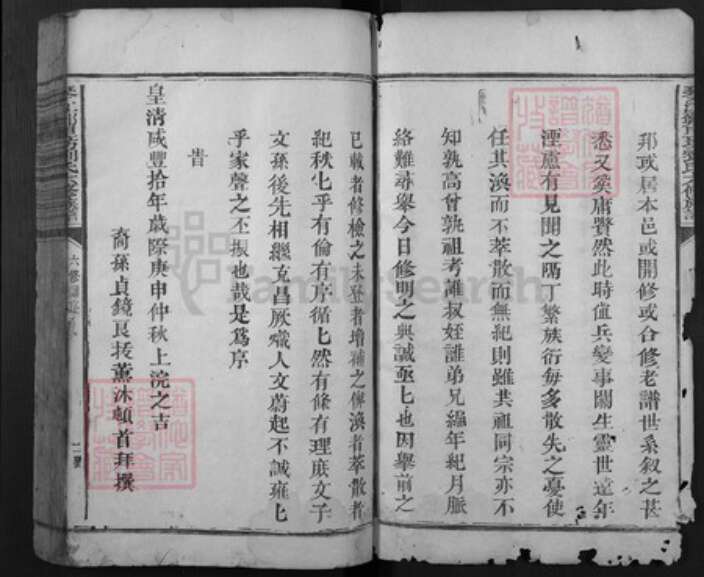 邦或居本邑或開修或合修老譜世系叙之甚
悉又奚庸贅然此時値兵變事鬧生靈世遠年
湮廬有見聞之隔丁繁族衍每多散失之憂使
任其渙而不萃散而無紀則雖共祖同宗亦不
知孰高曾孰祖考誰叔姪誰弟兄編年紀月脈
絡難尋舉今日修明之典誠亟亡也因舉前之
已載者修檢之未登者增補之俾渙者萃散者
紀秩七乎有倫有序循七然有條有理庶文子
文孫後先相繼克昌厥熾人文蔚起不誠雍七
乎家聲之丕振也哉是爲序
旹
皇清咸豐拾年歲際庚申仲秋上浣之吉
裔孫貞鏡艮拔薰沐頓首拜撰
FamilySearch